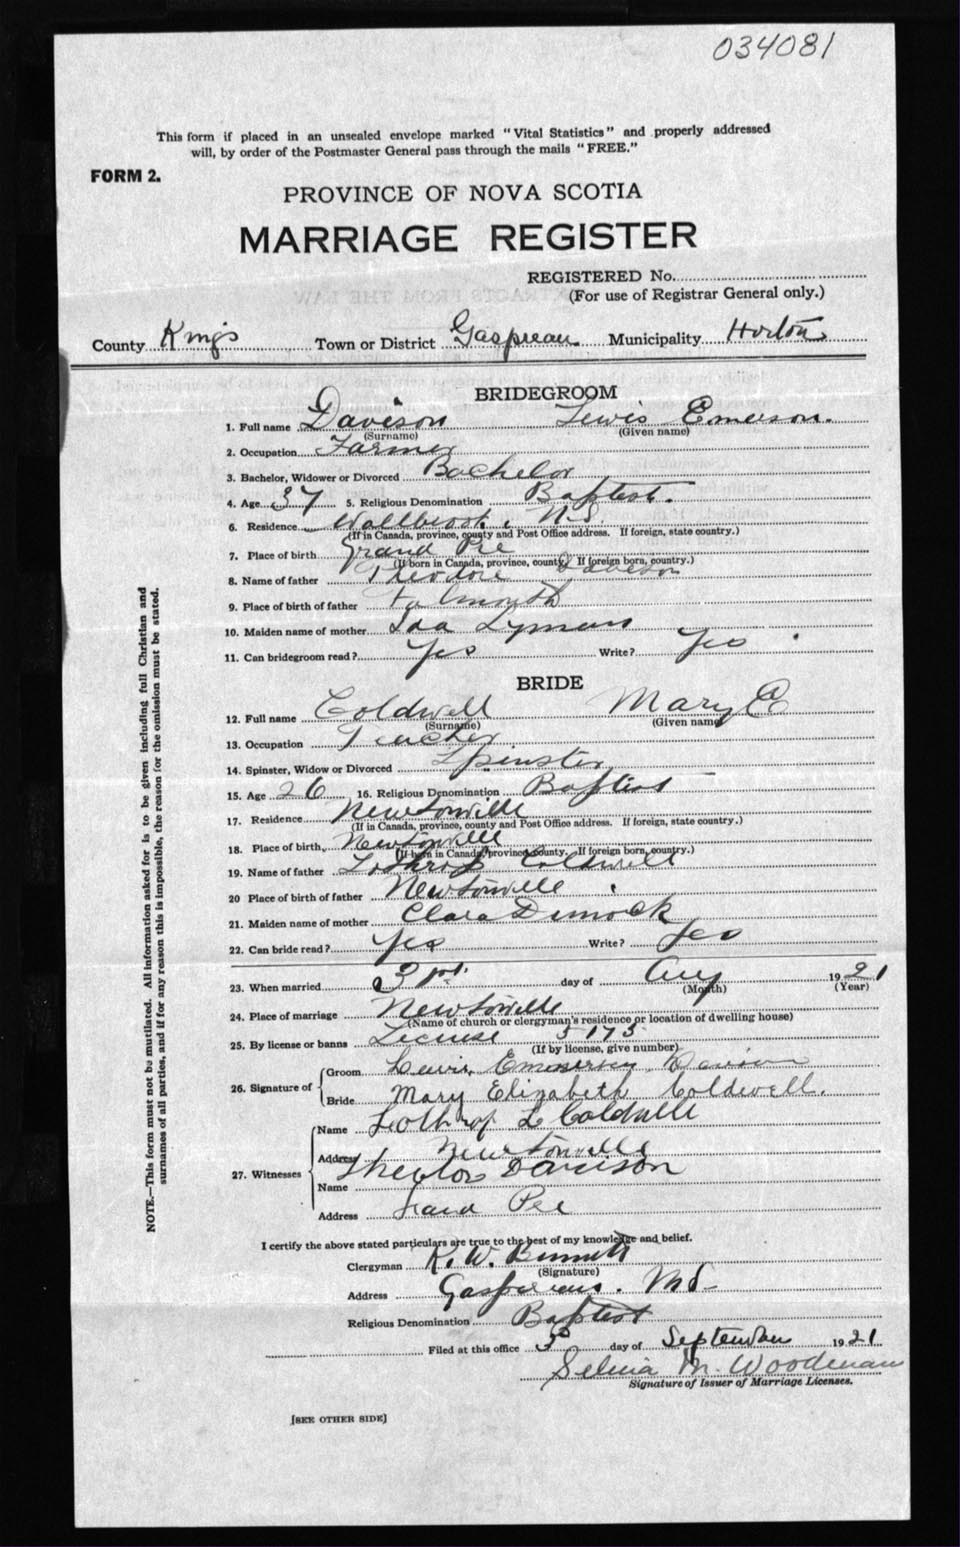 034081
This form if placed in an unsealed envelope marked "Vital Statistics" and properly addressed
will, by order of the Postmaster General pass through the mails "FREE."
FORM 2.
PROVINCE OF NOVA SCOTIA
MARRIAGE REGISTER
REGISTERED No.
(For use of Registrar General only.)
County Kings Town or District Gaspreau Municipality Horton
BRIDEGROOM
1. Full name Davison Lewis Emerson.
(Surname) (Given name)
2. Occupation Farmer
3. Bachelor, Widower or Divorced Bachelor
4. Age 37 5. Religious Denomination Baptist.
6. Residence Wallbrook, N.S.
(If in Canada, province, county and Post Office address. If foreign, state country.)
7. Place of birth Grand Pre
(If born in Canada, province, county, If foreign born, country.)
8. Name of father Theodore Davison
9. Place of birth of father Falmouth
10. Maiden name of mother Ida Lyman
11. Can bridegroom read? Yes Write? Yes
BRIDE
12. Full name Coldwell Mary E
(Surname) (Given name)
13. Occupation Teacher
14. Spinster, Widow or Divorced Spinster
15. Age 26 16. Religious Denomination Baptist
17. Residence Newtonville
(If in Canada, province, county and Post Office address. If foreign, state country.)
18. Place of birth, Newtonville
(If born in Canada, province, county. If foreign born, country.)
19. Name of father Lothrop Coldwell
20 Place of birth of father Newtonville
21. Maiden name of mother Clara Dimock
22. Can bride read? Yes Write? Yes
23. When married 31st. day of Aug 1921
(Month) (Year)
24. Place of marriage Newtonville
(Name of church or clergyman's residence or location of dwelling house)
25. By license or banns License 5175
(If by license, give number)
26. Signature of Groom Lewis Emerson Davison
Bride Mary Elizabeth Coldwell.
27. Witnesses
Name Lothrop L Coldwell
Address Newtonville
Name Davison
Address Grand Pre
I certify the above stated particulars are true to the best of my knowledge and belief.
Clergyman
(Signature)
Address N.S.
Religious Denomination Baptist
Filed at this office 3 day of September 1921
Selena M. Woodman
Signature of Issuer of Marriage Licenses.
[SEE OTHER SIDE]
NOTE.—This form must not be mutilated. All information asked for is to be given including full Christian and
surnames of all parties, and if for any reason this is impossible, the reason for the omission must be stated.